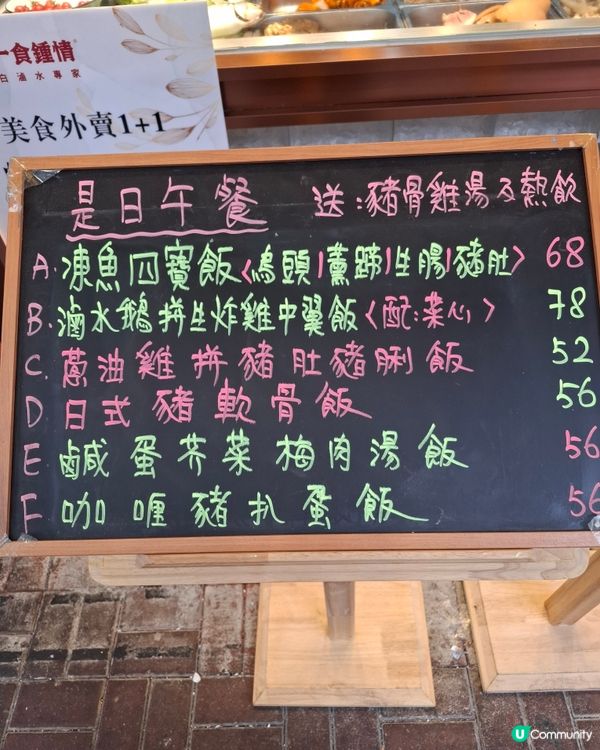 一食鍾情®
白滷水專家
美食外賣1+1
是日午餐 送:豬骨雞湯及熱飲
A. 凍魚四寶飯<烏頭/薰蹄/生腸/豬肚> 68
B. 滷水鵝拼生炸雞中翼飯<配:菜心> 78
C. 蔥油雞拼豬肚豬脷飯 52
D 日式豬軟骨飯 56
E 鹹蛋芥菜梅肉湯飯 56
F 咖喱豬扒蛋飯 56
U Community